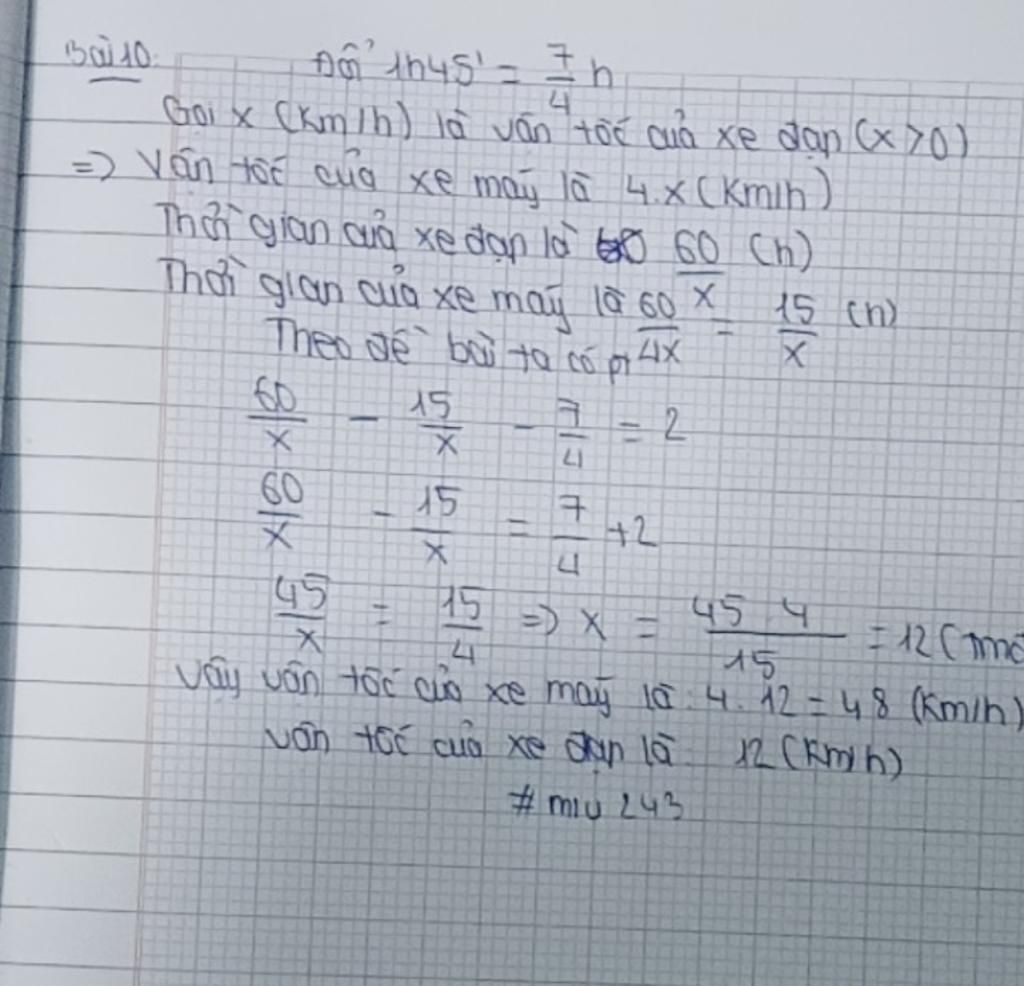 Bài 10.
Đổi 1h45' = 7/4 h
Gọi x (km/h) là vận tốc của xe đạp (x > 0)
=> Vận tốc của xe máy là 4.x (km/h)
Thời gian của xe đạp là 60/x (h)
Thời gian của xe máy là 60/4x = 15/x (h)
Theo đề bài ta có pt
60/x - 15/x - 7/4 = 2
60/x - 15/x = 7/4 + 2
45/x = 15/4 => x = 45.4/15 = 12 (
Vậy vận tốc của xe máy là: 4.12 = 48 (km/h)
vận tốc của xe đạp là 12 (km/h)
# miu 243